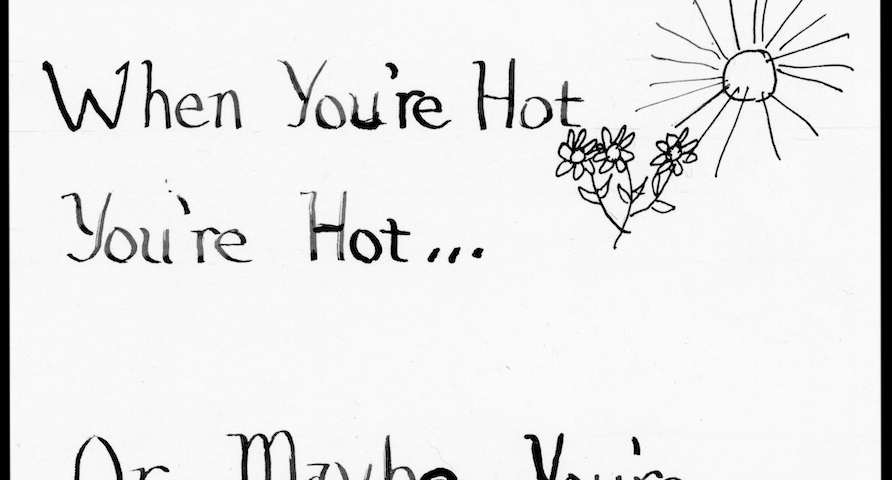 When You're Hot
You're Hot...
Or Maybe You're